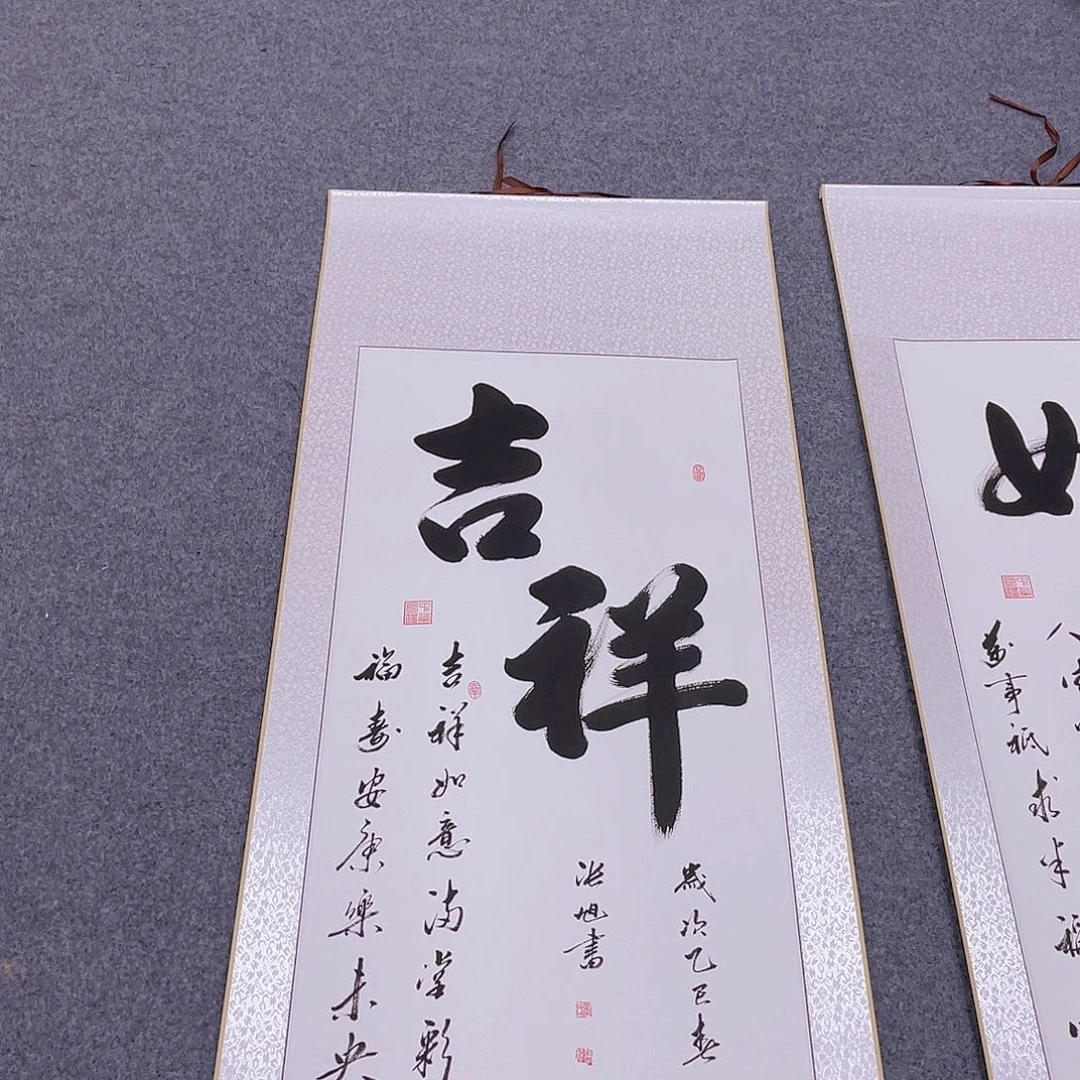 吉祥
歲次乙巳春
旭書
吉祥如意滿堂彩
福壽安康樂未央
萬事祗求半